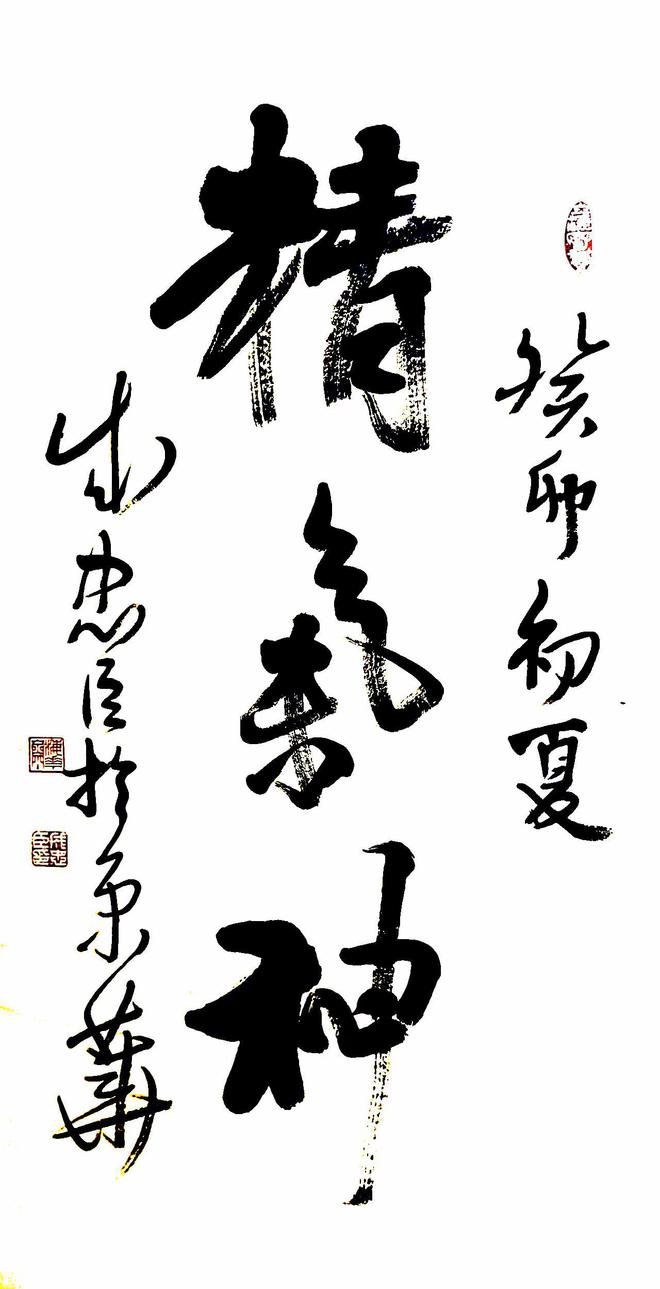 癸卯初夏
精氣神
成忠臣於京華